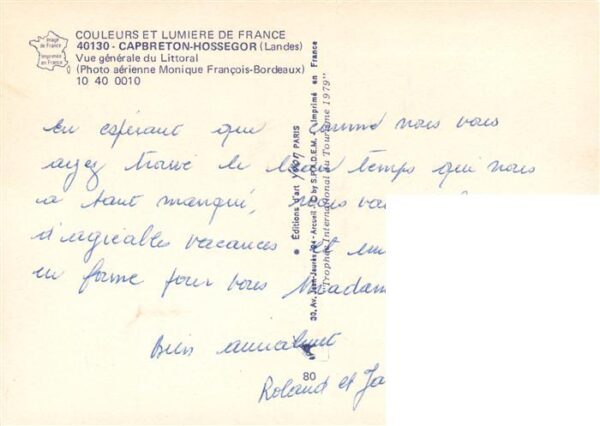 COULEURS ET LUMIERE DE FRANCE
40130 - CAPBRETON-HOSSEGOR (Landes)
Vue générale du Littoral
(Photo aérienne Monique François-Bordeaux)
10 40 0010
image de France
imprimée en France
en espérant que comme nous vous
ayez trouvé le beau temps qui nous
a tant manqué, nous
d'agréables vacances et
en forme pour vous Madam
Bien amicalement
Roland et Ja
Editions d'art yvon PARIS
30, Av. Jean-Jaurès, 94 - Arcueil - © by S.P.A.D.E.M. - Imprimé en France
"Trophée International du Tourisme 1979"
80